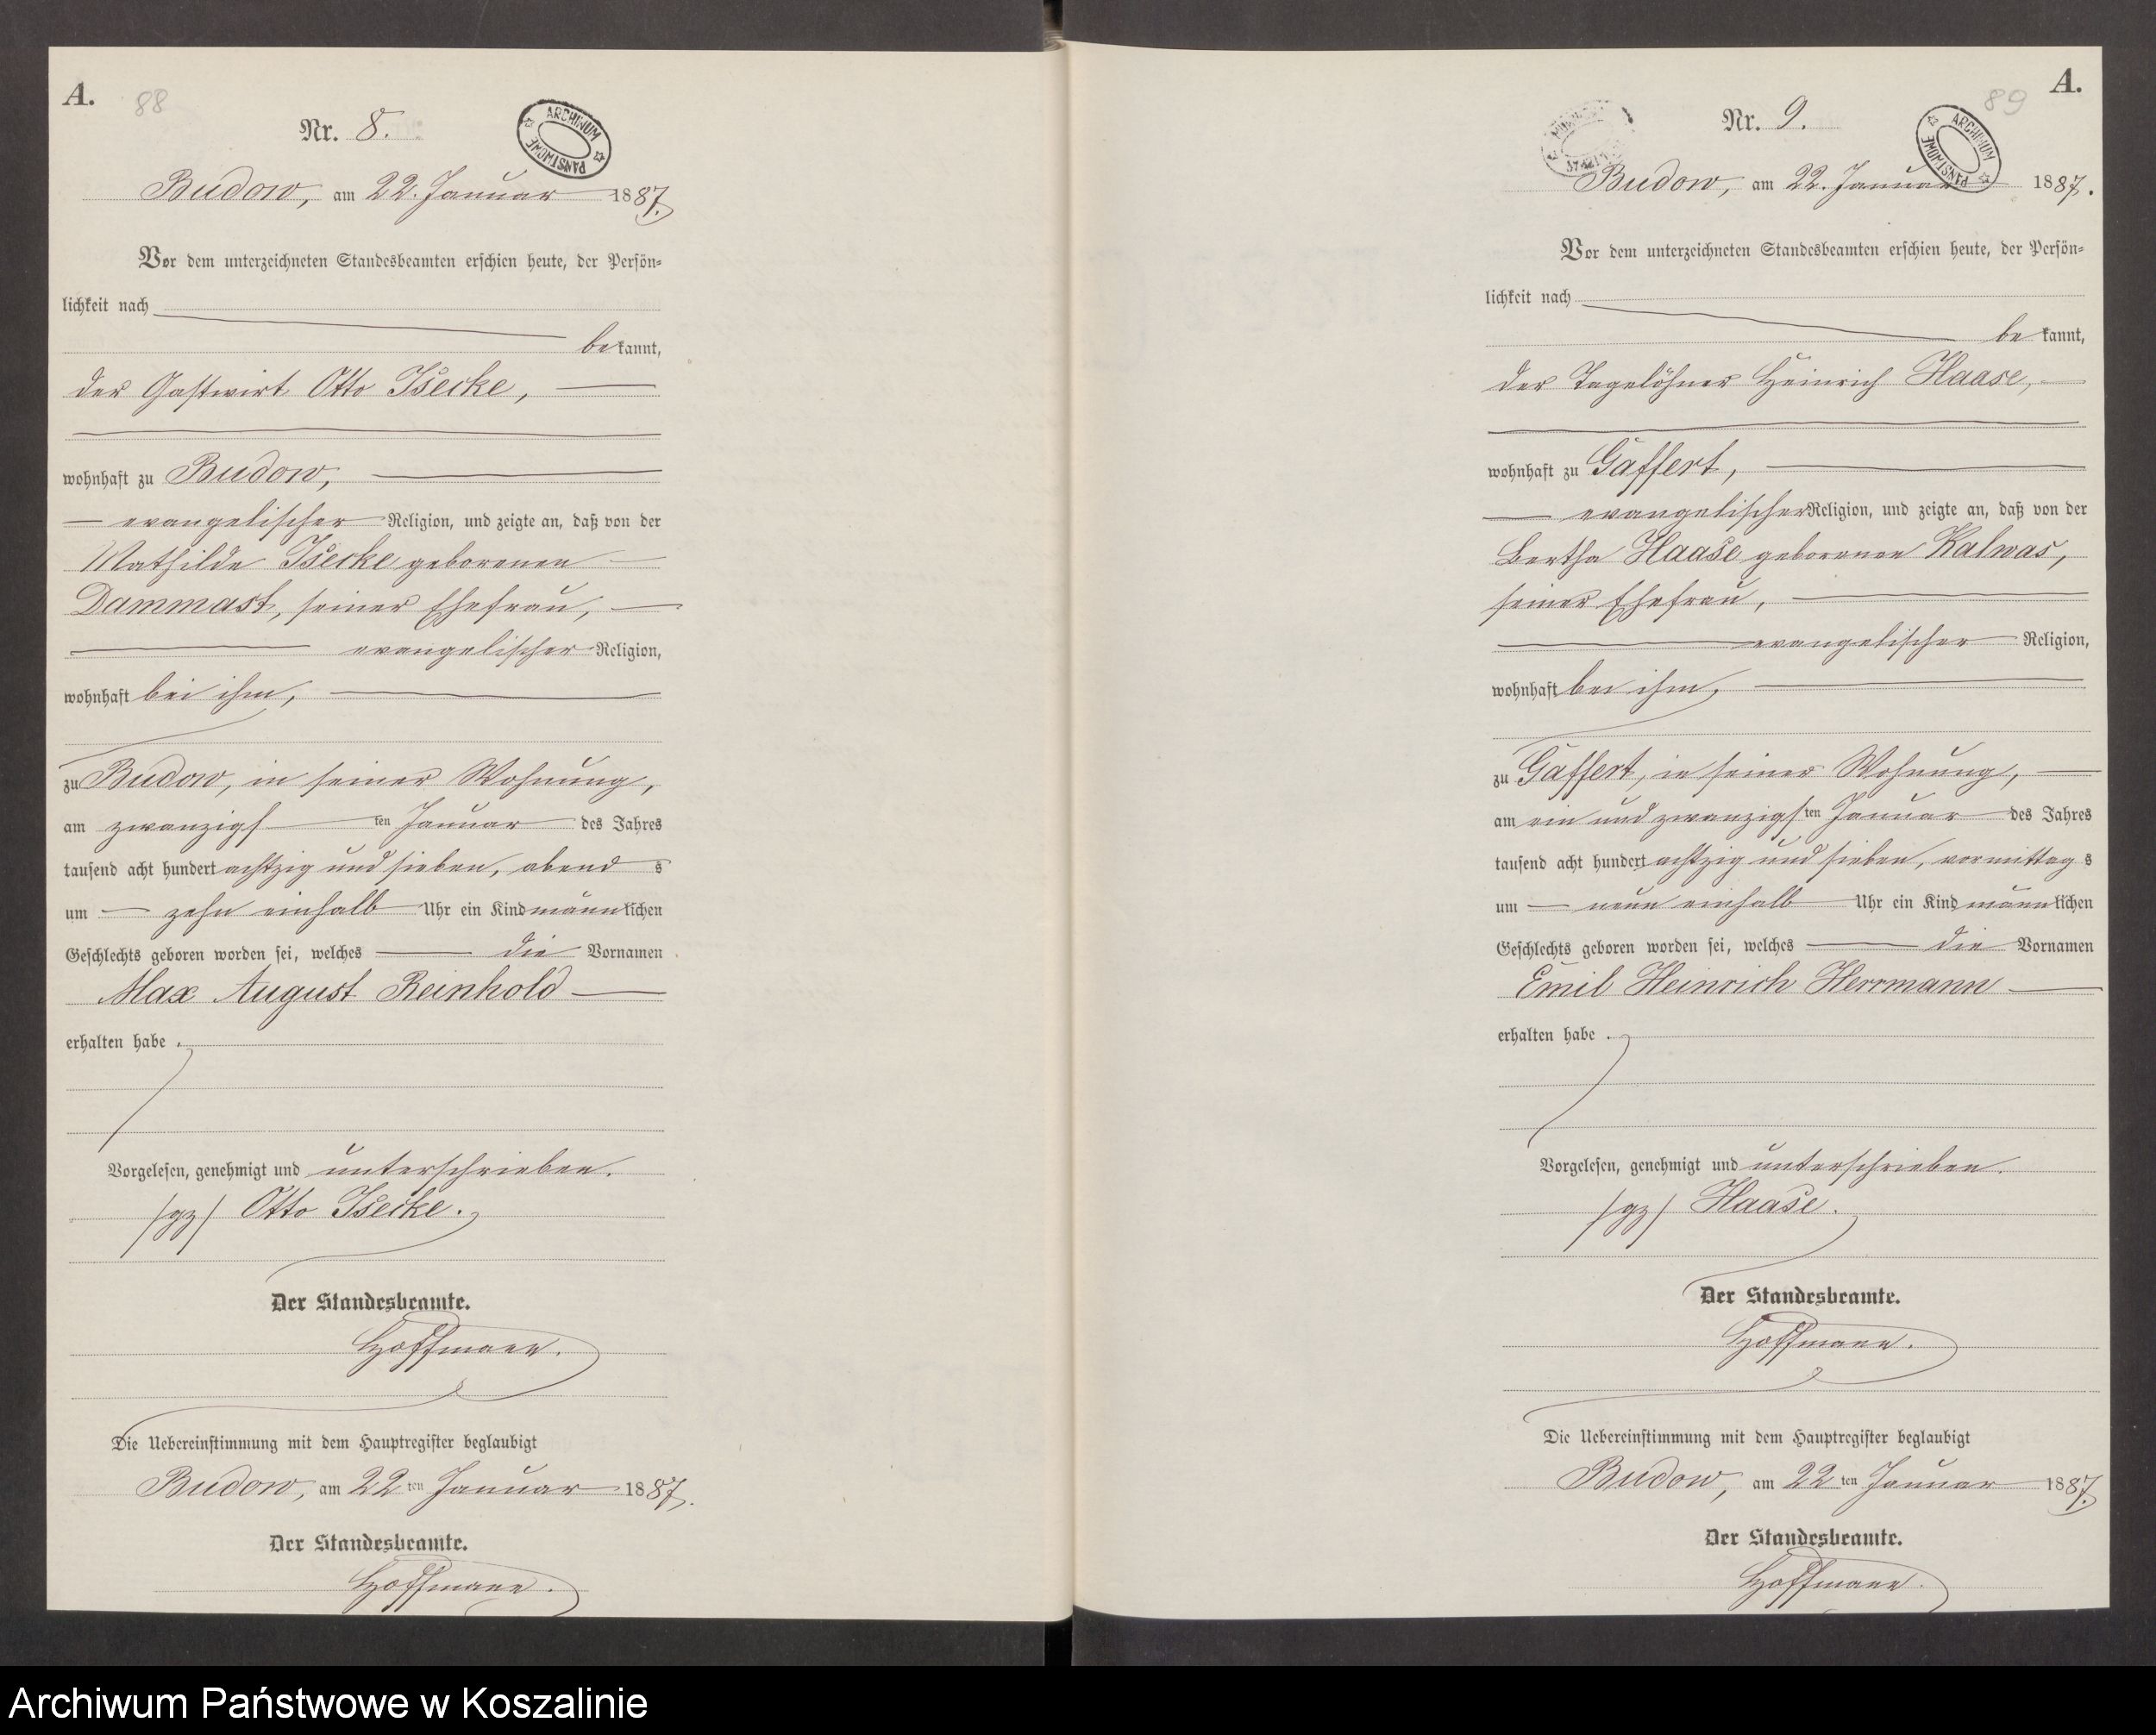 A.
88
Nr. 8.
ARCHIWUM PAŃSTWOWE
Budow, am 22. Januar 1887.
Vor dem unterzeichneten Standesbeamten erschien heute, der Persön=
lichkeit nach
bekannt,
der Gastwirt Otto Isecke,
wohnhaft zu Budow,
evangelischer Religion, und zeigte an, daß von der
Mathilde Isecke geborenen
Dammast, seiner Ehefrau,
evangelischer Religion,
wohnhaft bei ihm,
zu Budow, in seiner Wohnung,
am zwanzigsten Januar des Jahres
tausend acht hundert achtzig und sieben, abends
um zehn einhalb Uhr ein Kind männlichen
Geschlechts geboren worden sei, welches die Vornamen
Max August Reinhold
erhalten habe.
Vorgelesen, genehmigt und unterschrieben.
/gz/ Otto Isecke.
Der Standesbeamte.
Hoffmann.
Die Uebereinstimmung mit dem Hauptregister beglaubigt
Budow, am 22ten Januar 1887.
Der Standesbeamte.
Hoffmann.
A.
89
Nr. 9.
ARCHIWUM PAŃSTWOWE
Budow, am 22. Januar 1887.
Vor dem unterzeichneten Standesbeamten erschien heute, der Persön=
lichkeit nach
bekannt,
der Tagelöhner Heinrich Haase,
wohnhaft zu Gaffert,
evangelischer Religion, und zeigte an, daß von der
Bertha Haase geborenen Kalwas,
seiner Ehefrau,
evangelischer Religion,
wohnhaft bei ihm,
zu Gaffert, in seiner Wohnung,
am ein und zwanzigsten Januar des Jahres
tausend acht hundert achtzig und sieben, vormittags
um neun einhalb Uhr ein Kind männlichen
Geschlechts geboren worden sei, welches die Vornamen
Emil Heinrich Herrmann
erhalten habe.
Vorgelesen, genehmigt und unterschrieben.
/gz/ Haase.
Der Standesbeamte.
Hoffmann.
Die Uebereinstimmung mit dem Hauptregister beglaubigt
Budow, am 22ten Januar 1887.
Der Standesbeamte.
Hoffmann.
Archiwum Państwowe w Koszalinie